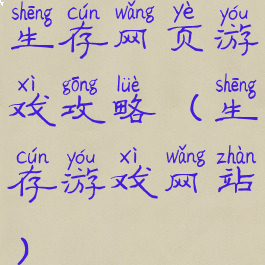 shēng cún wǎng yè yóu
生存网页游
xì gōng lüè shēng
戏攻略(生
cún yóu xì wǎng zhàn
存游戏网站
)